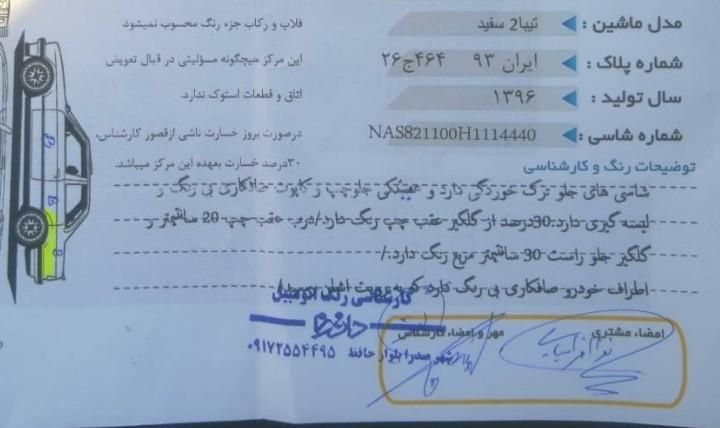 مدل ماشین : تیبا2 سفید
شماره پلاک : ایران ۹۳ ۴۶۴ج۲۶
سال تولید : ۱۳۹۶
شماره شاسی : NAS821100H1114440
قلاب و رکاب جزء رنگ محسوب نمیشود.
این مرکز هیچگونه مسؤلیتی در قبال تعویض
اتاق و قطعات استوک ندارد.
درصورت بروز خسارت ناشی ازقصور کارشناس،
۳۰درصد خسارت بعهده این مرکز میباشد.
توضیحات رنگ و کارشناسی
شاسی های جلو ترک خوردگی دارد و جلوچپ و کاپوت صافکاری بی رنگ و
لیسه گیری دارد.30درصد از گلگیر عقب چپ رنگ دارد/درب عقب چپ 20 سانتیمتر و
گلگیر جلو راست 30 سانتیمتر مربع رنگ دارد./
اطراف خودرو صافکاری بی رنگ دارد
کارشناسی رنگ اتومبیل
شهر صدرا بلوار حافظ ۰۹۱۷۲۵۵۴۴۹۵
مهر و امضاء کارشناس
امضاء مشتری
B
B
B